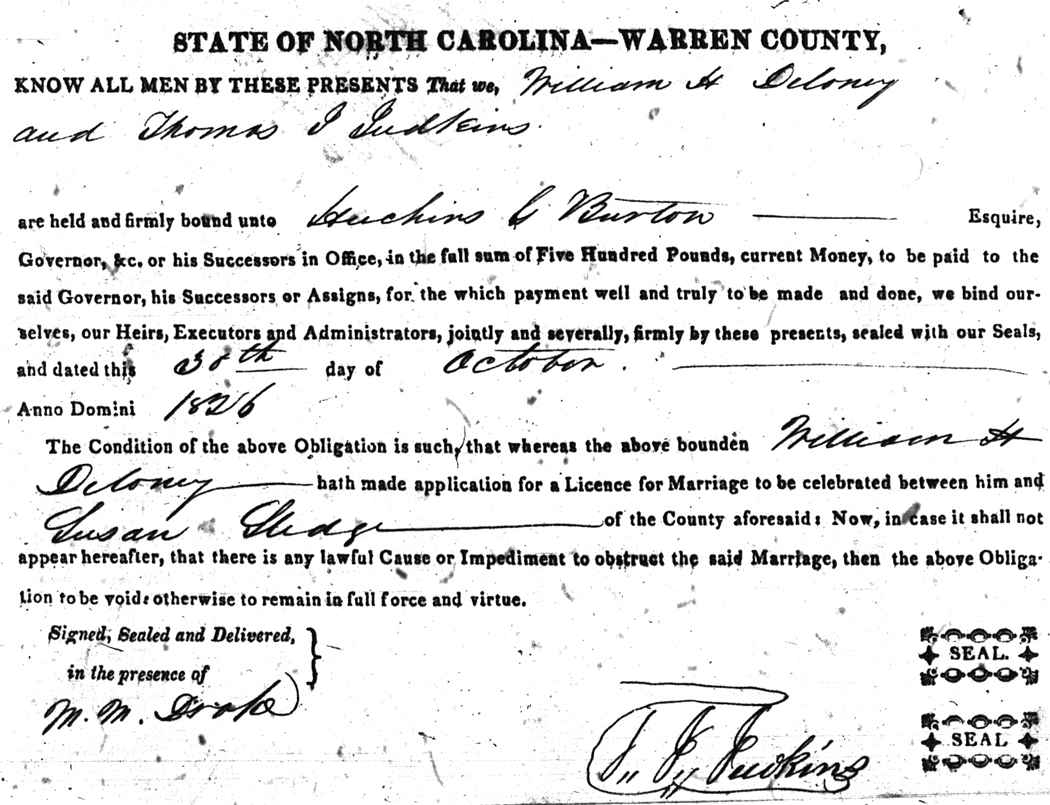 STATE OF NORTH CAROLINA—WARREN COUNTY,
KNOW ALL MEN BY THESE PRESENTS That we, William H Deloney
and Thomas J Judkins.
are held and firmly bound unto Hutchins G Burton Esquire,
Governor, &c. or his Successors in Office, in the full sum of Five Hundred Pounds, current Money, to be paid to the
said Governor, his Successors or Assigns, for the which payment well and truly to be made and done, we bind our-
selves, our Heirs, Executors and Administrators, jointly and severally, firmly by these presents, sealed with our Seals,
and dated this 30th day of October.
Anno Domini 1826
The Condition of the above Obligation is such, that whereas the above bounden William H
Deloney hath made application for a Licence for Marriage to be celebrated between him and
Susan Sledge of the County aforesaid: Now, in case it shall not
appear hereafter, that there is any lawful Cause or Impediment to obstruct the said Marriage, then the above Obliga-
tion to be void: otherwise to remain in full force and virtue.
Signed, Sealed and Delivered,
in the presence of
SEAL.
M. M. Drake
T,, J,, Judkins
SEAL